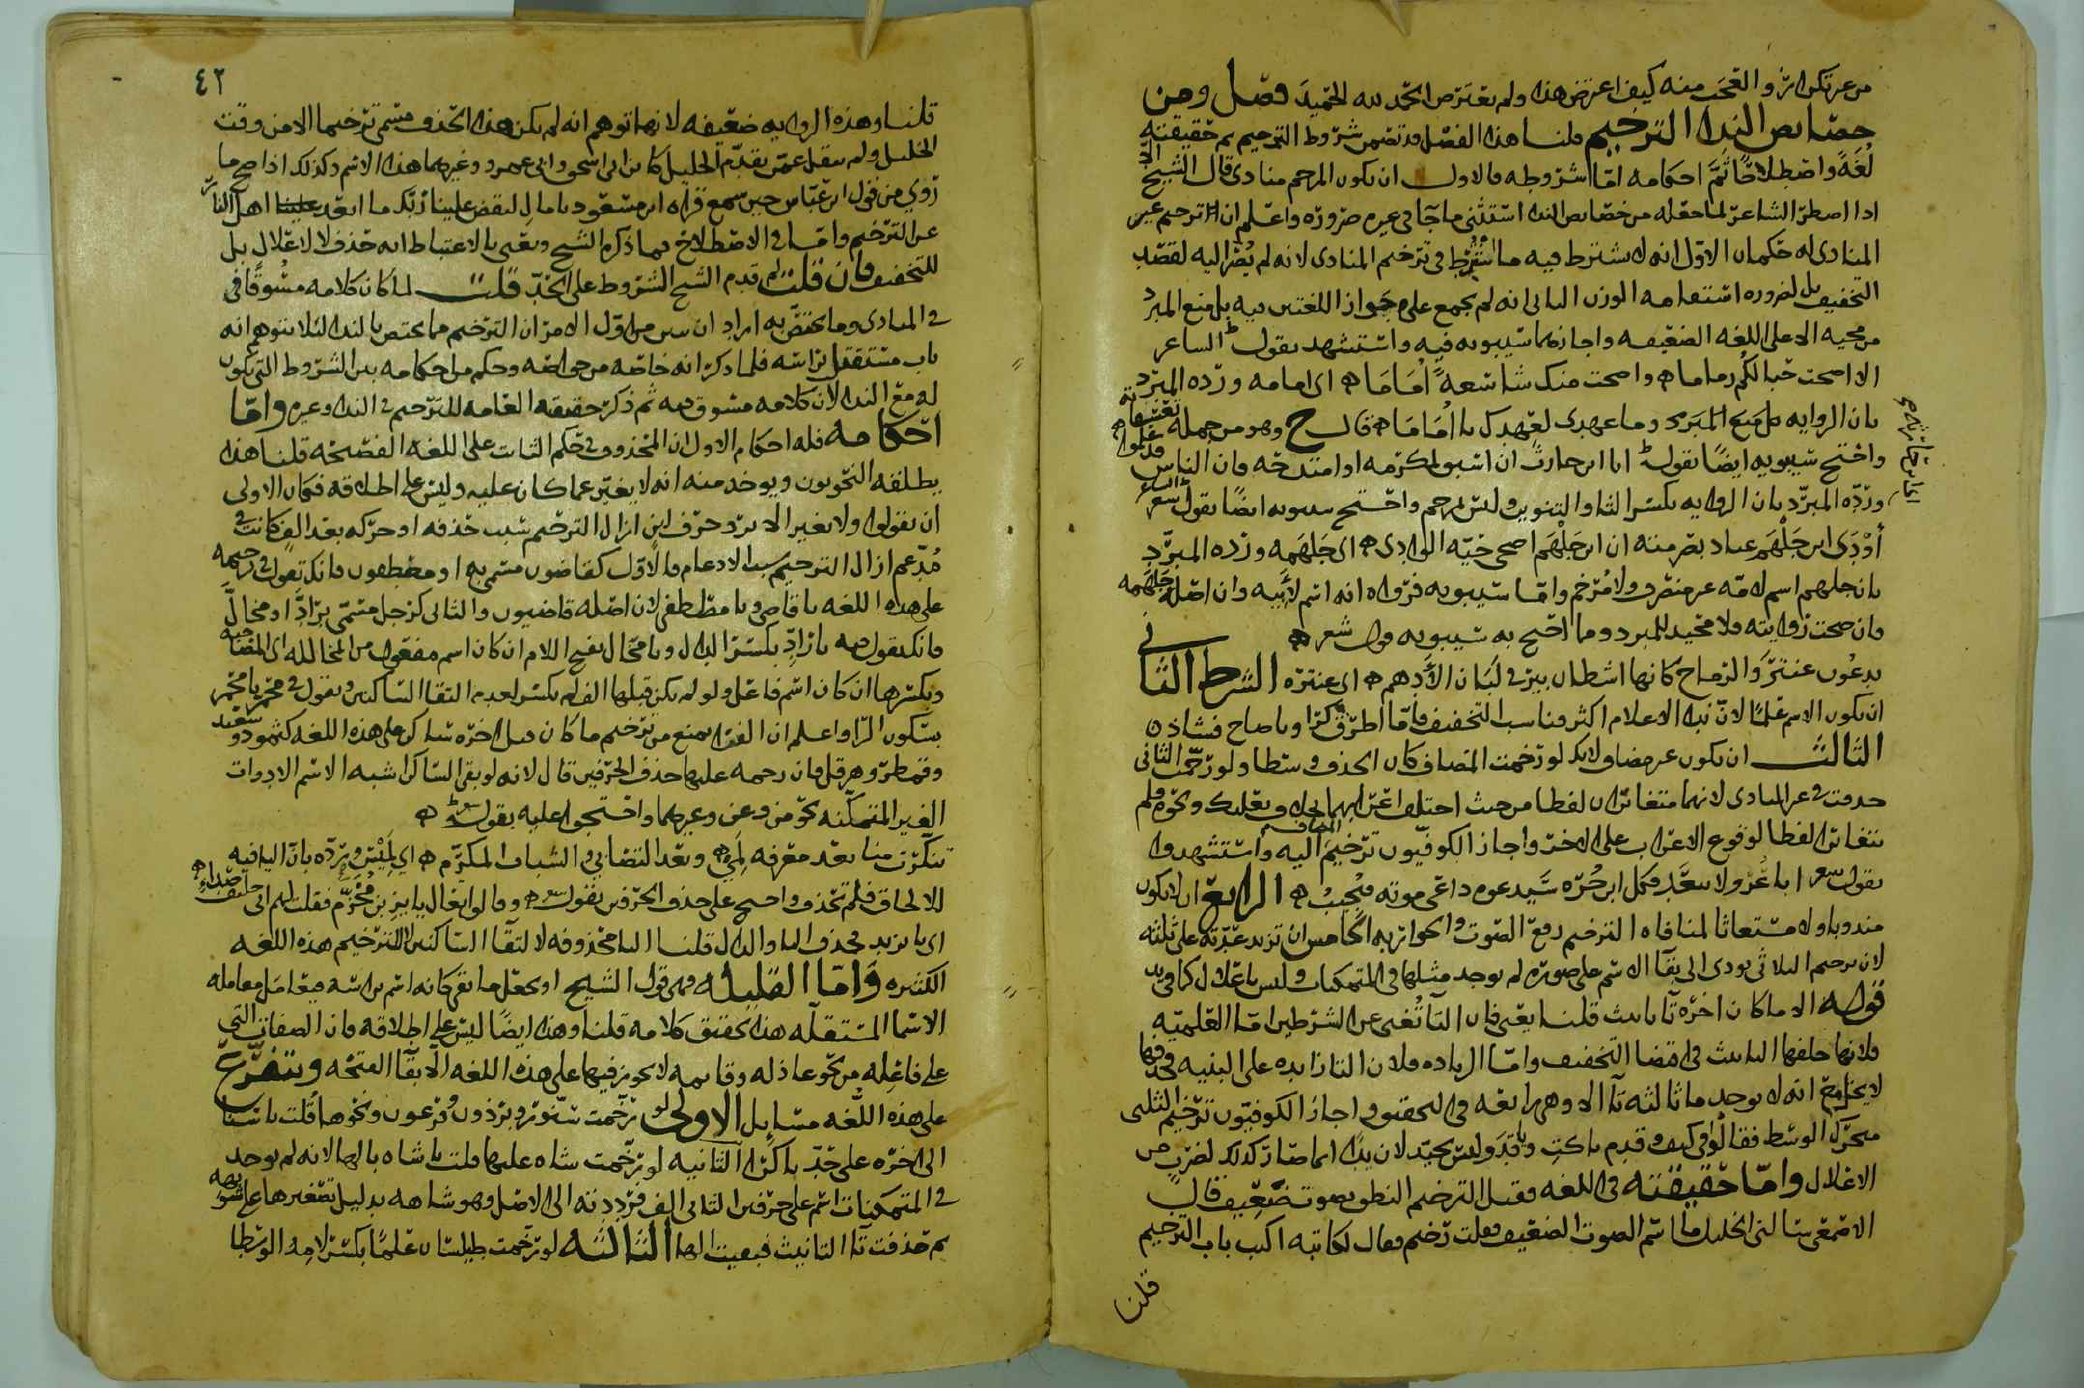 من عرتكم انز والتعجب منه كيف اعترض هذا ولم يعترض الحمد لله الحميد فصل ومن
خصايص الندا الترخيم قلنا هذا الفصل قد تضمن شروط الترخيم ثم حقيقته
لُغَةً واصطلاحًا ثمَّ احكامه امّا شروطه فالاول ان يكون المرخم منادى قال الشيخ الا
اذا اضطر الشاعر لما جعله من خصايص الندا استثنى ما جآ في غيره ضروره واعلم ان لترخيم غير
المنادى له حكمان الاوّل انه لا يشترط فيه ما اشتُرِط في ترخيم المنادى لانه لم يُضر اليه لقصد
التخفيف بل لضروره استقامه الوزن الثاني انه لم يجمع على جواز اللغتين فيه بل منع المبرد
من مجيه الا على اللغه الضعيفه واجازهما سيبويه فيه واستشهد بقول الشاعر
الا اضحت حبالكُم رماما ه واضحت منك شاسعةً اُمَامَا ه اى امامه وردّه المبرّد
بان الروايه على منع المبرد وما عهدى لعهدك يا اُمَامَا ه قال ح وهو من جمله تعسفاته
واحتج سيبويه ايضًا بقول اما ابن حارث ان اشتق لمكرمه او امتدحه فان الناس قد علموا ه
وردّه المبرّد بان الروايه بكسر الثا والتنوين وليس بمرخم واحتج سيبويه ايضًا بقول الشاعر
أَوْدَى ابن جَلْهَم عباد بصرمته ان ابن جَلْهَم اضحى حيّه الوادى ه اى جَلهمه وردّه المبرّد
بان جلهم اسم لامّه غير منصرف ولا مُرخم وامّا سيبويه فرواه انه اسم لابيه وان اصله جَلهمه
فان صحت روايته فلا محيد للمبرد ومما احتج به سيبويه قول شعر ه
يدعُون عنترَ والرماح كانها اشطان بيرٍ في لَبَان الأَدهم ه اى عنتره الشرط الثاني
ان يكون الاسم علمًا لانّ ندا الاعلام اكثر فناسب التخفيف فأمّا اطرق كرًا ويا صاح فشاذ ن
الثالث ان يكون غير مضاف لانك لو رخمت المضاف كان الحذف وسطا ولو رخّمت الثاني
حذفت في غير المنادى لانهما متغايران لفظا من حيث اختلف اعرابهما بخلاف بعلبك ونحوه فلم
يتغايرا لفظا لوقوع الاعراب على الاخر واجاز الكوفيّون ترخيم المضاف اليه واستشهدوا
بقول شعر ابا عُرْو لا تبعَد فكل ابن حُرّه سَيدعوه داعى موته فيُجيبُ ه الرابع ان لا يكون
مندوبا ولا مستغاثا لمنافاه الترخيم رفع الصوت والجواز به الخامس ان تزيد عدّته على ثلثه
لان ترخيم الثلاثى يودى الى بقآ الاسم على صوره لم يوجد مثلها في المتمكنات وليس باعلال كما في يد
قوله الا ما كان اخره تآ تانيث قلنا يعنى فان التآ تُغنى عن الشرطين امّا العلميّه
فلانها خلفها التانيث في اقتضا التخفيف وامّا الزياده فلان التا زايده على البنيه فحذفها
لا يخل مع انه لا يوجد ما ثالثه تآ الا وهى رابعه في التحقيق واجاز الكوفيّون ترخيم الثلثى
متحرّك الوسط فقالوا في كيف وقدم يا كتِ ويا قدَ وليس بجيّد لان يدًا انما صار كذلك لضرب من
الاعلال وامّا حقيقته في اللغه فقيل الترخيم النطق بصوت ضعيف قال
الاصمعى سالنى الخليل ما اسم الصوت الضعيف فقلت ترخيم فقال لكاتبه اكتب باب الترخيم
قلنا
٤٢
قلنا وهذه الروايه ضعيفه لانها توهم انه لم يكن هذا الحذف مسمى ترخيما الا من وقت
الخليل ولم ينقل عمن تقدّم الخليل كابن ابى اسحق وابى عمرو وغيرهما هذا الاسم وكذلك اذا صح ما
رُوي من قول ابن عباس حين سمع قراه ابن مسعود يا مالِ ليقض علينا ربّك ما ابعد اهل النار
عن الترخيم وامّا في الاصطلاح فما ذكره الشيخ ويعنى بالاعتباط انه حذف لا لاعلال بل
للتخفيف فان قلت لم قدم الشيخ الشروط على الحدّ قلت لما كان كلامه مسُوقًا في
في المنادى وما يختصّ به اراد ان يبين من اوّل الامر ان الترخيم مما يختص بالندا لئلا يتوهم انه
باب مستقل براسه فلما ذكر انه خاصّه من خواصّه وحكم من احكامه بين الشروط التى تكون
له مع الندا لان كلامه مسوق فيه ثم ذكر حقيقته العامه للترخيم في الندا وغيره وامّا
احكامه فله احكام الاول ان المحذوف في حكم الثابت على اللغه الفصيحه قلنا هذا
يطلقه النحويون ويوخذ منه انه لا يغيّر عما كان عليه وليس على اطلاقه فكان الاولى
ان يقولوا ولا يغير الا برد حرف لين ازال الترخيم سبب حذفه او حركه بعد الف كانت في
مُدّغم ازال الترخيم سبب الادغام فالاوّل كقاضون مسمى به او مصطفون فانك تقول في ترخيمه
على هذه اللغه يا قاضى ويا مصطفى لان اصله قاضيون والثانى كرجل مسمّى برَادٍّ او محَالٍّ
فانك تقول فيه يا رَادِ بكسر الدال ويا محَال بفتح اللام ان كان اسم مفعول من المحالله اى المصافيه
وبكسرها ان كان اسم فاعل ولو لم يكن قبلها الف لم يكسر لعدم التقا السّاكنين وتقول في محمرّ يا محمر
بسكون الرّا واعلم ان الفرا يمنع من ترخيم ما كان قبل اخره ساكن على هذه اللغه كثمود وسعيد
وقمطر وهرقل فان رخمه عليها حذف الحرفين قال لانه لو بقى السّاكن اشبه الاسم الادوات
الغير المتمكّنه نحو من وعن وغيرهما واحتجوا عليه بقوله ه
تنكّرت منا بعد معرفه لَمِى ه وبعد التصابى والشباب المكرّم ه اى لَمِيس ويردّه بانّ اليا فيه
للالحاق فلم تحذف واحتج على حذف الحرفين بقول شعر ه وقالوا تعال يا يزِ بن مُخَرِّم فقلت لهم انى حليف صُداءِ ه
اى يا يزيد فحذف اليا والدال قلنا اليا محذوفه لالتقآ الساكنين لا للترخيم هذه اللغه
الكثيره وَامّا القليله فهى قول الشيخ او يجعل ما بقى كانه اسم براسه فيعامَل معامله
الاسما المستقله هذا تحقيق كلامه قلنا وهذا ايضًا ليس على اطلاقه فان الصفات التى
على فاعِله من نحو عاذله وقايمه لا يجوز فيها على هذه اللغه الّا بقآ الفتحه وتتفرّع
على هذه اللُّغه مسَايل الاولى لو رخّمت سنّور وبرذون وفرعون ونحوها قُلت يا سنا
الى اخره على حدّ يا كرَا الثانيه لو رخّمت شاه عليها قلت يا شاه بالها لانه لم يوجد
في المتمكنات اسم على حرفين الثانى الف فرددته الى الاصل وهو شاهه بدليل تصغيرها على شويهه
ثم حذفت تآ التانيث فبقيت الها الثالثه لو رخّمت طيلسان علمًا بكسر لامه الوسطا